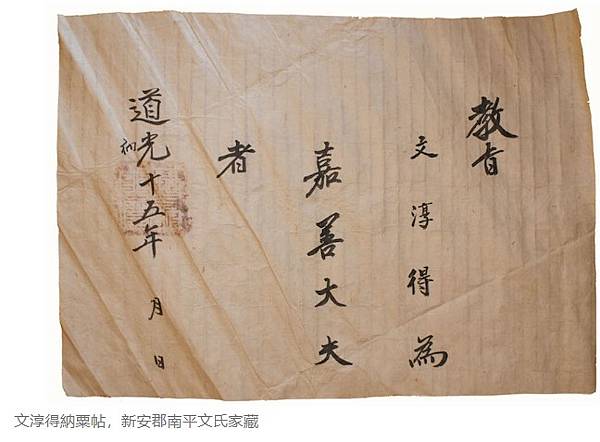 教旨
文淳得為
嘉善大夫
者
道光十五年 月 日
文淳得納粟帖，新安郡南平文氏家藏